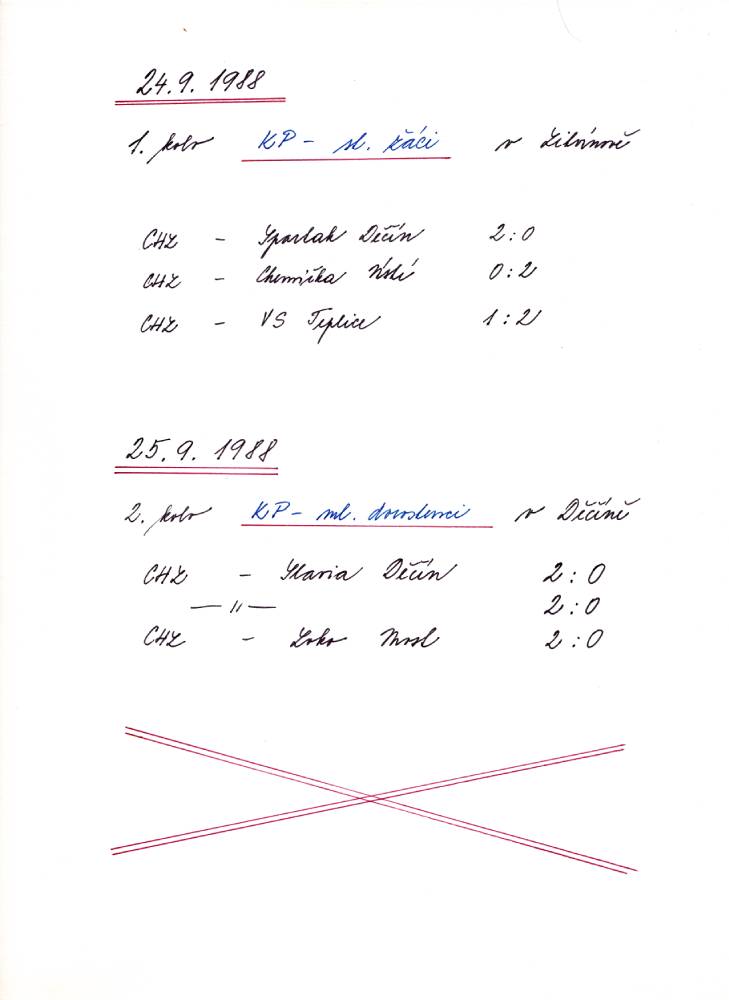 24.9. 1988
1. kolo KP - st. žáci v Litvínově
CHZ - Spartak Děčín 2:0
CHZ - Chemička Ústí 0:2
CHZ - VS Teplice 1:2
25.9. 1988
2. kolo KP - ml. dorostenci v Děčíně
CHZ - Slavia Děčín 2:0
— 〃 — 2:0
CHZ - Loko Most 2:0